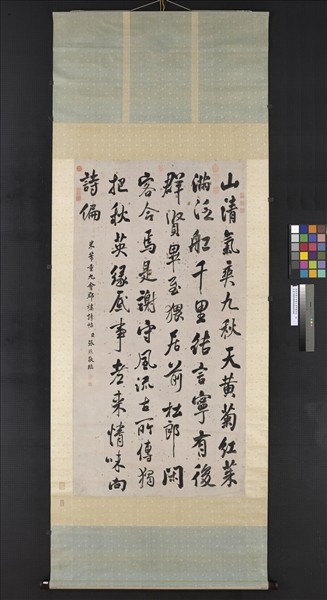 山清氣爽九秋天黃菊紅茱
滿泛船千里結言寧有後
群賢畢至猥居前杜郎閑
客今焉是謝守風流古所傳獨
把秋英緣底事老來情味向
詩偏
米芾重九會郡樓詩帖 臣張照敬臨